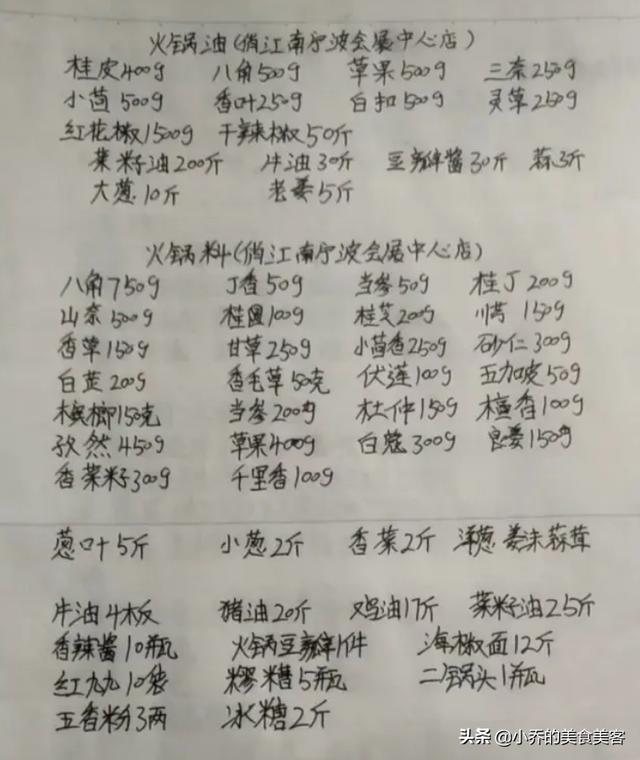 火锅油(俏江南宁波会展中心店)
桂皮400g 八角500g 草果500g 三奈250g
小茴500g 香叶250g 白扣500g 灵草250g
红花椒1500g 干辣椒50斤
菜籽油200斤 牛油30斤 豆瓣酱30斤 蒜3斤
大葱10斤 老姜5斤
火锅料(俏江南宁波会展中心店)
八角750g 丁香50g 当参50g 桂丁200g
山奈500g 桂圆100g 桂芝200g 川芎150g
香草150g 甘草250g 小茴香250g 砂仁300g
白芷200g 香毛草50克 伏莲100g 五加皮50g
槟榔150克 当参200g 杜仲150g 檀香100g
孜然450g 草果400g 白蔻300g 良姜150g
香菜籽300g 千里香100g
葱叶5斤 小葱2斤 香菜2斤 洋葱 姜末蒜茸
牛油4板 猪油20斤 鸡油17斤 菜籽油25斤
香辣酱10瓶 火锅豆瓣1件 海椒面12斤
红九九10袋 醪糟5瓶 二锅头1瓶
五香粉3两 冰糖2斤
头条 @小乔的美食美客